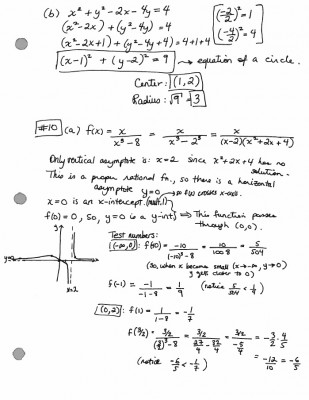 (b) x² + y² - 2x - 4y = 4
(x² - 2x) + (y² - 4y) = 4
(x² - 2x + 1) + (y² - 4y + 4) = 4 + 1 + 4
(x - 1)² + (y - 2)² = 9 → equation of a circle.
(-2/2)² = 1
(-4/2)² = 4
Center: (1, 2)
Radius: √9 = 3
#10 (a) f(x) = x/(x³ - 8) = x/(x³ - 2³) = x/((x-2)(x² + 2x + 4))
Only vertical asymptote is: x = 2 since x² + 2x + 4 has no solution.
This is a proper rational fn., so there is a horizontal
asymptote y = 0 → so f(x) crosses x-axis.
x = 0 is an x-intercept. (mult. 1)
f(0) = 0, so, y = 0 is a y-int } ⇒ This function passes through (0,0).
Test numbers:
(-∞, 0): f(-10) = -10/((-10)³ - 8) = -10/-1008 = 5/504
(so, when x become small (x → -∞, y → 0)
y gets closer to 0)
f(-1) = -1/(-1 - 8) = 1/9 (notice 5/504 < 1/9)
y
y=0
x
x=2
(0, 2): f(1) = 1/(1 - 8) = -1/7
f(3/2) = (3/2)/((3/2)³ - 8) = (3/2)/(27/8 - 64/8)
(notice -6/5 < -1/7)
= -12/10 = -6/5